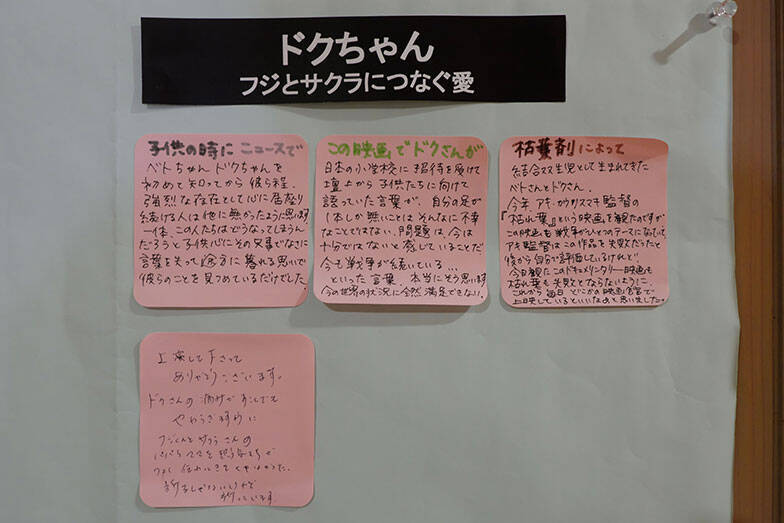 ドクちゃん
フジとサクラにつなぐ愛
子供の時に ニュースで
ベトちゃん ドクちゃんを
初めて知ってから 彼ら程、
強烈な存在として心に居座り
続ける人は他に無かったように思います
一体、この人たちはどうなってしまうん
だろうと子供心にその見事でなさに
言葉を失って途方に暮れる思いで
彼らのことを見つめているだけでした。
この映画でドクさんが
日本の小学校に招待を受けて
壇上から子供たちに向けて
語っていた言葉が、自分の足が
1本しか無いことはそんなに不幸
なことではない。問題は、今は
十分ではないと感じていることだ。
今も戦争が続いている…
といった言葉。本当にそう思います
今の世界の状況に全然満足できない。
枯葉剤によって
結合双生児として生まれてきた
ベトさんとドクさん。
今年 アキ・カウリスマキ監督の
『枯れ葉』という映画を観たのですが
この映画も戦争がひとつのテーマになっていて、
アキ監督はこの作品を失敗だったと
後から自分で評価しているけれど、
今日観たこのドキュメンタリー映画も
枯れ葉も失敗とならないように、
これから毎日どこかの映画館で
上映しているといいなぁと思いました。
上演して下さって
ありがとうございます。
ドクさんの痛みがすこしでも
やわらぎますように
フジくんとサクラさんの
パパとママを想う気持ちが